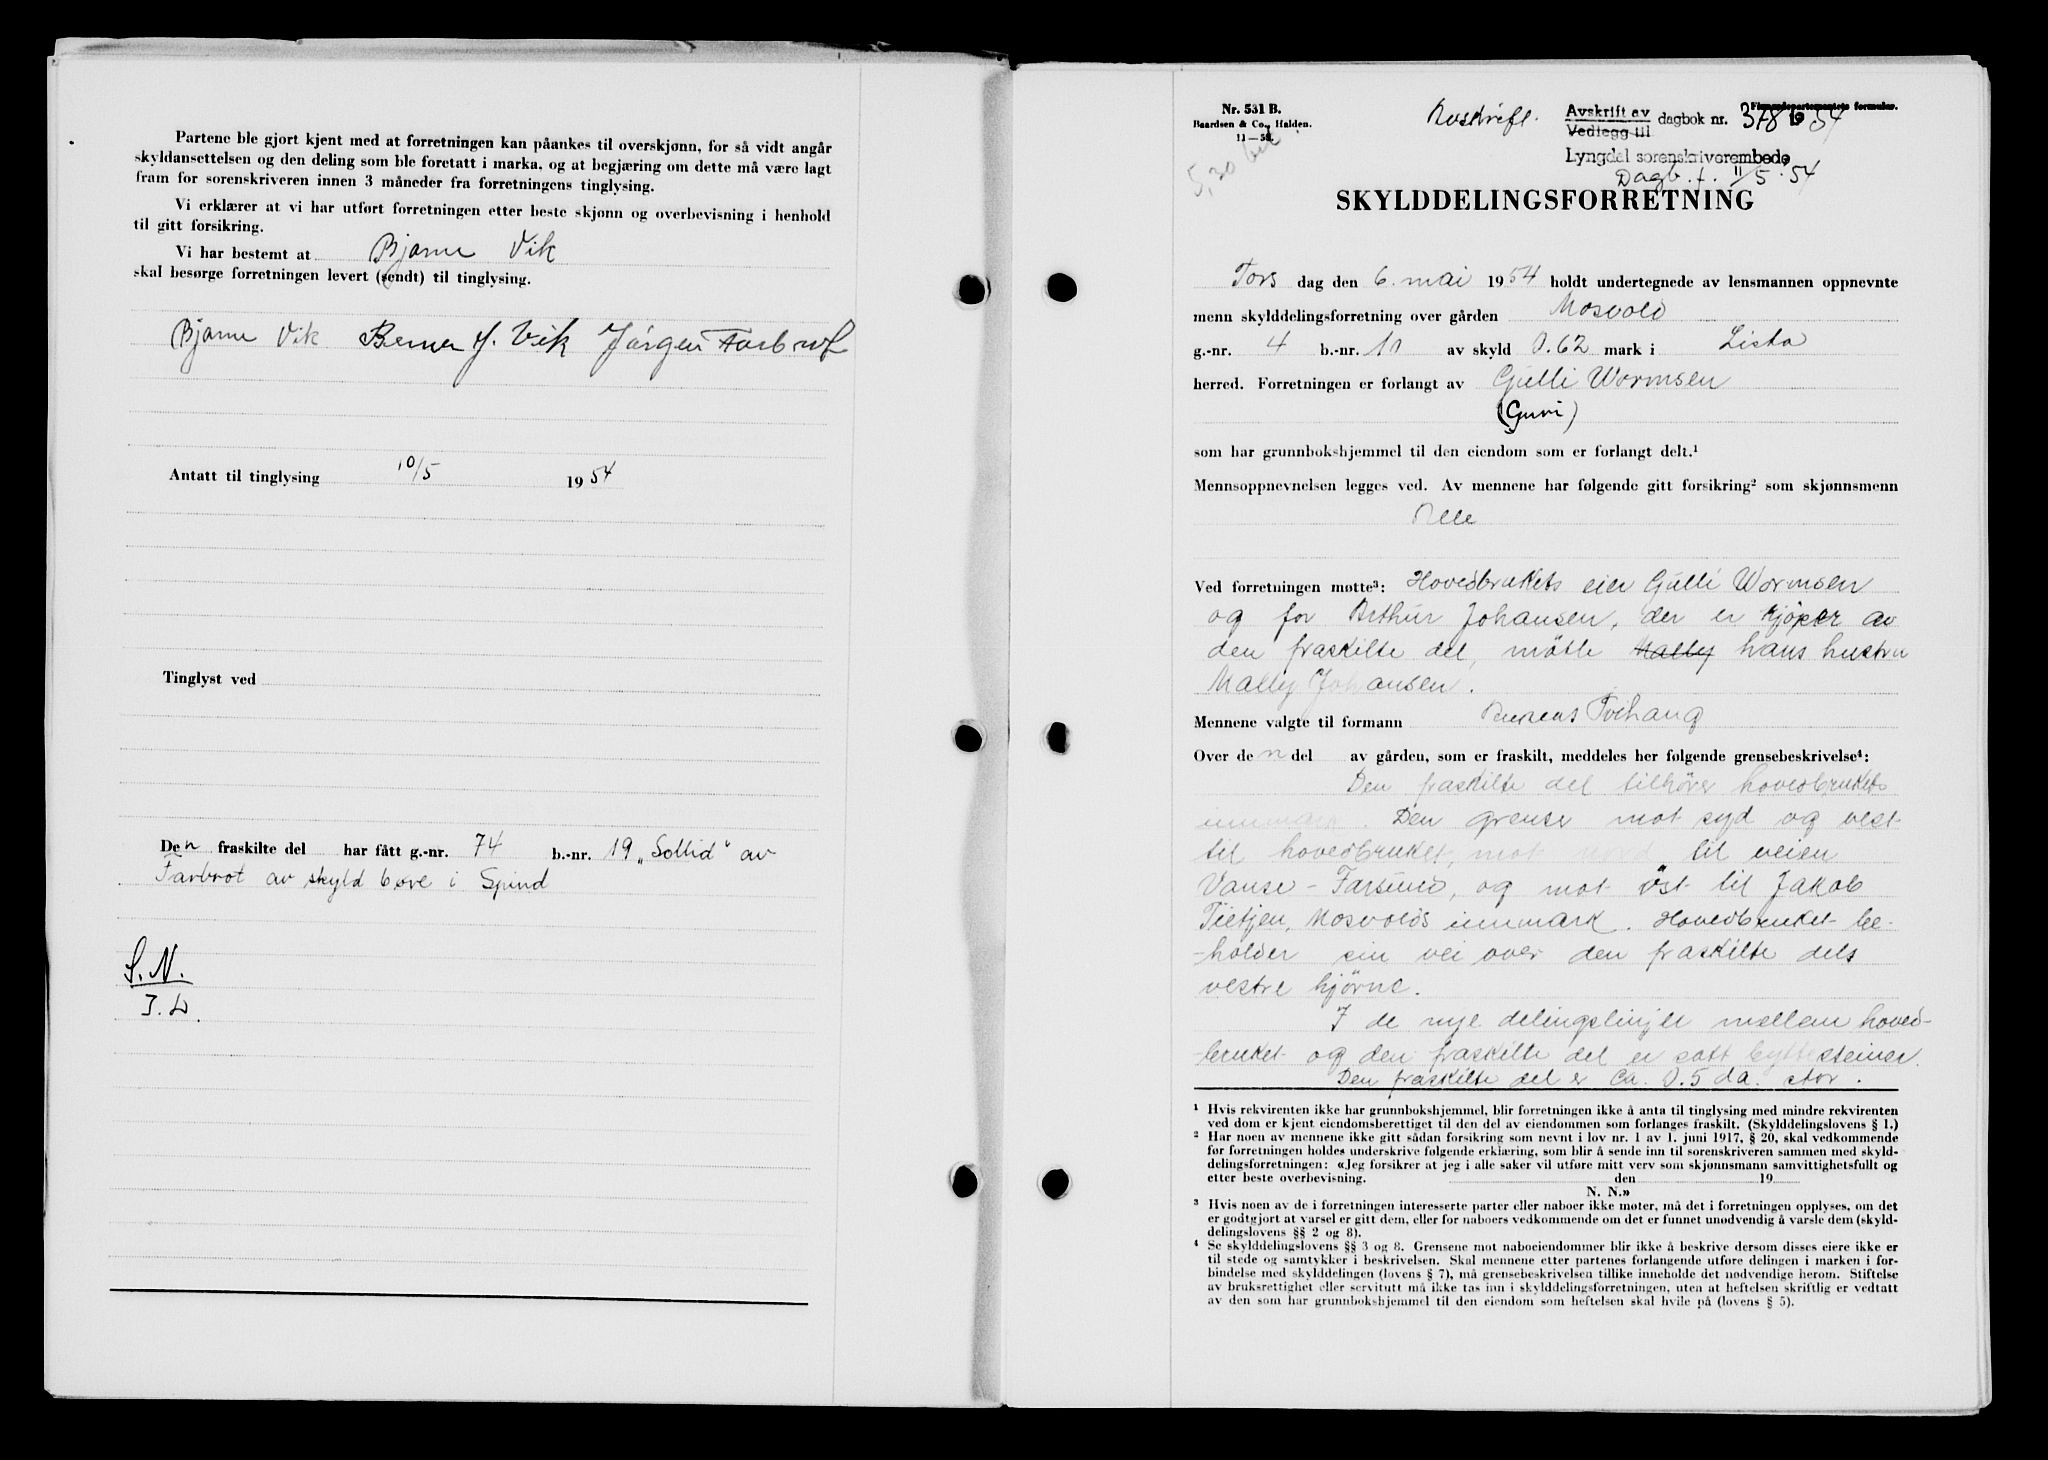 Partene ble gjort kjent med at forretningen kan påankes til overskjønn, for så vidt angår
skyldansettelsen og den deling som ble foretatt i marka, og at begjæring om dette må være lagt
fram for sorenskriveren innen 3 måneder fra forretningens tinglysing.
Vi erklærer at vi har utført forretningen etter beste skjønn og overbevisning i henhold
til gitt forsikring.
Vi har bestemt at Bjarne Vik
skal besørge forretningen levert (sendt) til tinglysing.
Bjarne Vik Berner J. Vik Jørgen
Antatt til tinglysing 10/5 1954
Tinglyst ved
Den fraskilte del har fått g.-nr. 74 b.-nr. 19 „Sollid" av
Farbrot av skyld 6 øre i Spind
S.N.
J.L.
Nr. 531 B.
Baardsen & Co., Halden.
11—50.
5,20 bet
Avskrift.
Finansdepartementets formular.
Avskrift av
Vedlegg til dagbok nr. 378 1954
Lyngdal sorenskriverembede
Dagb.f. 11/5.54
SKYLDDELINGSFORRETNING
Tors dag den 6. mai 1954 holdt undertegnede av lensmannen oppnevnte
menn skylddelingsforretning over gården Mosvold
g.-nr. 4 b.-nr. 10 av skyld 0.62 mark i Lista
herred. Forretningen er forlangt av Gulli Wormsen
(Guri)
som har grunnbokshjemmel til den eiendom som er forlangt delt.¹
Mennsoppnevnelsen legges ved. Av mennene har følgende gitt forsikring² som skjønnsmenn
Alle
Ved forretningen møtte³: Hovedbrukets eier Gulli Wormsen
og for Arthur Johansen, der er kjøper av
den fraskilte del, møtte Mally hans hustru
Mally Johansen.
Mennene valgte til formann
Over den del av gården, som er fraskilt, meddeles her følgende grensebeskrivelse⁴:
Den fraskilte del tilhører hovedbrukets
innmark. Den grenser mot syd og vest
til hovedbruket, mot nord til veien
Vanse - Farsund, og mot øst til Jakob
Tietjen, Mosvolds innmark. Hovedbruket be-
-holder sin vei over den fraskilte dels
vestre hjørne.
I de nye delingslinjer mellem hoved-
-bruket og den fraskilte del er satt byttesteiner.
Den fraskilte del er ca. 0.5 da. stor.
¹ Hvis rekvirenten ikke har grunnbokshjemmel, blir forretningen ikke å anta til tinglysing med mindre rekvirenten
ved dom er kjent eiendomsberettiget til den del av eiendommen som forlanges fraskilt. (Skylddelingslovens § 1.)
² Har noen av mennene ikke gitt sådan forsikring som nevnt i lov nr. 1 av 1. juni 1917, § 20, skal vedkommende
før forretningen holdes underskrive følgende erklæring, som blir å sende inn til sorenskriveren sammen med skyld-
delingsforretningen: «Jeg forsikrer at jeg i alle saker vil utføre mitt verv som skjønnsmann samvittighetsfullt og
etter beste overbevisning. den 19
N. N.»
³ Hvis noen av de i forretningen interesserte parter eller naboer ikke møter, må det i forretningen opplyses, om det
er godtgjort at varsel er gitt dem, eller for naboers vedkommende om det er funnet unødvendig å varsle dem (skyld-
delingslovens §§ 2 og 8).
⁴ Se skylddelingslovens §§ 3 og 8. Grensene mot naboeiendommer blir ikke å beskrive dersom disses eiere ikke er
til stede og samtykker i beskrivelsen. Skal mennene etter partenes forlangende utføre delingen i marken i for-
bindelse med skylddelingen (lovens § 7), må grensebeskrivelsen tillike inneholde det nødvendige herom. Stiftelse
av bruksrettighet eller servitutt må ikke tas inn i skylddelingsforretningen, uten at heftelsen skriftlig er vedtatt
av den som har grunnbokshjemmel til den eiendom som heftelsen skal hvile på (lovens § 5).